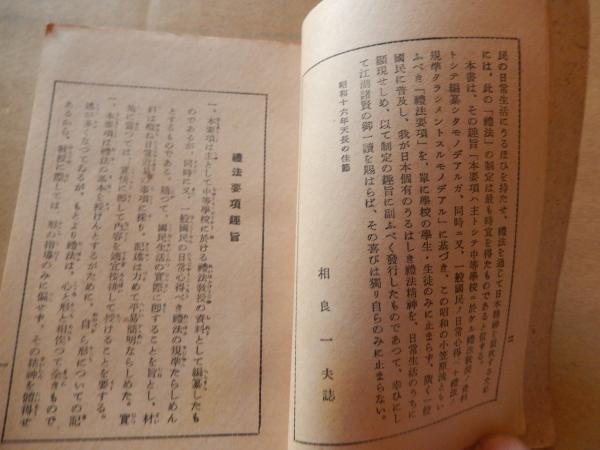 民の日常生活にうるほひを持たせ、禮法を通じて日本精神を
には、此の「禮法」の制定は最も時宜を得たものであると信ずる。
本書は、その趣旨「本要項ハ主トシテ中等學校ニ於ケル禮法教授ノ資料
トシテ編纂シタモノデアルガ、同時ニ又、一般國民ノ日常心得ベキ禮法ノ
規準タラシメントスルモノデアル」に基づき、この昭和の小笠原流ともい
ふべき「禮法要項」を、單に學校の學生・生徒のみに止まらず、廣く一般
國民に普及し、我が日本個有のうるはしき禮法精神を、日常生活のうちに
顯現せしめ、以て制定の趣旨に副ふべく發行したものであつて、幸ひにし
て江湖諸賢の御一讀を賜はらば、その喜びは獨り自らのみに止まらない。
昭和十六年天長の佳節
相良一夫誌
禮法要項趣旨
一、本要項は主として中等學校に於ける禮法教授の資料として編纂したも
のであるが、同時に又、一般國民の日常心得べき禮法の規準たらしめん
とするものである。隨つて、國民生活の實際に即することを旨とし、材
料は概ね日常の事項に採り、記述は力めて平易簡明ならしめた。實
施に當つては、實情に即して内容を適宜按排して授けることを要する。
一、本要項は禮法の基本を授けんとするがために、自ら形についての記
述が多くなつてゐるが、もとより禮法は、心と形と相俟つて全きもので
あるから、教授に際しては、形の指導のみに偏せず、その精神を體得せ